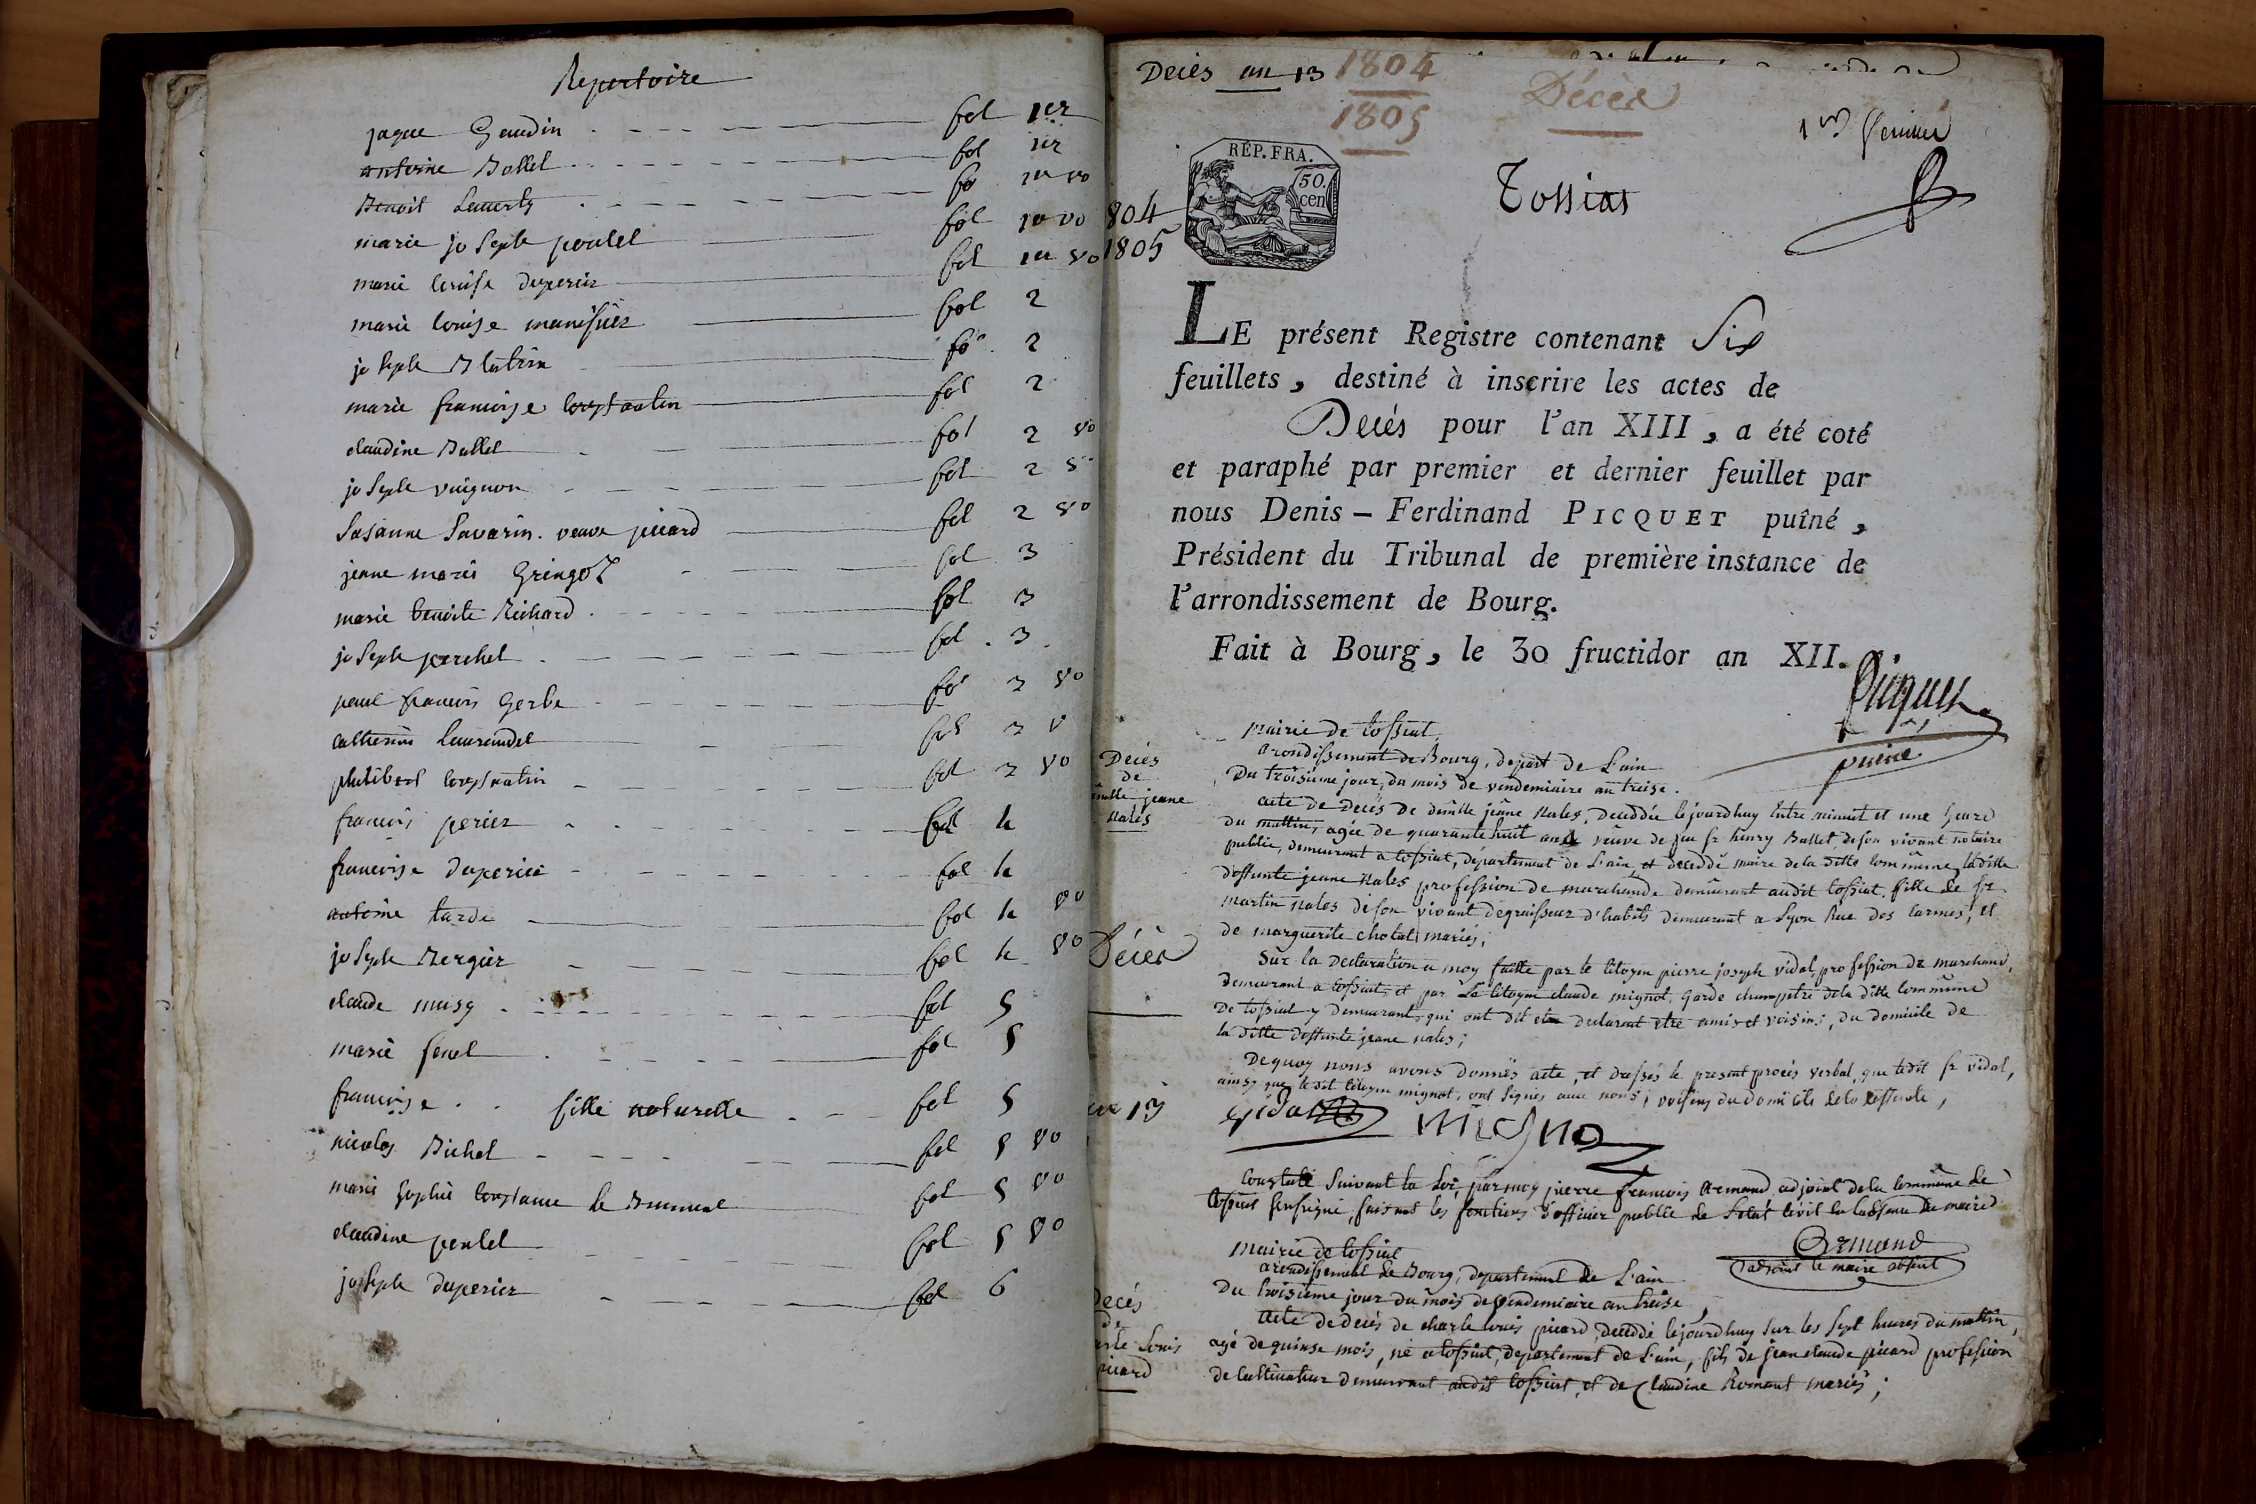 Repertoire
jaque Gaudin fol 1er
antoine Ballet fol 1er
Benoit fol 1er vo
marie joseph poulet fol 1er vo
marie louise duperier fol 1er vo
marie louise fol 2
joseph fol 2
marie francoise constantin fol 2
claudine Ballet fol 2 vo
joseph vuignon fol 2 vo
Susanne Savarin. veuve picard fol 2 vo
jeanne marie Gringoz fol 3
marie benoite Richard fol 3
joseph perchet fol. 3.
paul francois Gerbe fo 3 vo
catherine laurendel fol 3 v
philibert constantin fol 3 vo
francois perier fol 4
francoise duperier fol 4
antoine tarde fol 4 vo
joseph Bergier fol 4 vo
claude musy fol 5
marie fenel fol 5
francoise . . fille naturelle fol 5
nicolas Bichet fol 5 vo
marie sophie constance le fol 5 vo
claudine poulet fol 5 vo
joseph duperier fol 6
804
1805
Décès
Decès an 13 1804
1805
Décès
1er feuillet
RÉP. FRA.
50.
cen
Tossiat
LE présent Registre contenant Six
feuillets, destiné à inscrire les actes de
Decés pour l'an XIII, a été coté
et paraphé par premier et dernier feuillet par
nous Denis – Ferdinand PICQUET puîné,
Président du Tribunal de première instance de
l'arrondissement de Bourg.
Fait à Bourg, le 30 fructidor an XII.
Picquet
puiné
Decés
de
jeanne
Nales
mairie de tossiat
arondissement de Bourg, depart de L'ain
Du troisieme jour, du mois de vendemiaire an treise.
acte de Decés de demlle jeane Nales, Deceddée lejourdhuy entre minuit et une heure
du mattin, agée de quarante huit ans veuve de feu sr henry Ballet, de son vivant notaire
publice, demeurant a tossiat, departement de L'ain, et deceddé maire dela ditte commune, laditte
deffunte jeane Nales profession de marchande demeurant audit tossiat, fille de sr
martin Nales de son vivant degraisseur d'habits demeurant a Lyon Rue des carmes, et
de marguerite chotal mariés;
Sur la Declaration a moy faitte par le citoyen pierre joseph vidal, profession de marchand,
demeurant a tossiat, et par le citoyen claude mignot, Garde champetre dela ditte commune
De tossiat y demeurant, qui ont dit et declarant etre amis et voisins, du domicile de
la ditte deffunte jeane nales;
De quoy nous avons donnés acte, et dressés le present procès verbal, que ledit sr vidal,
ainsy que ledit citoyen mignot, ont signés avec nous, voisins du domicile dela deffunte,
vidal mignot
Constaté suivant la Loi, par moy pierre francois armand adjoint dela commune de
tossiat soussigné, faisant les fonctions d'officier publle de l'etat civil en l'absence du maire
armand
l'adjoint le maire absent
an 13
Decés
de
Louis
picard
mairie de tossiat
arondissement de Bourg, departement de L'ain
Du troisieme jour du mois de vendemiaire an treise,
acte de decés de charle louis picard, deceddé lejourdhuy sur les sept heures du mattin,
agé de quinse mois, né a tossiat, departement de L'ain, fils de jean claude picard profession
de cultivateur demeurant audit tossiat, et de claudine Romant mariés;